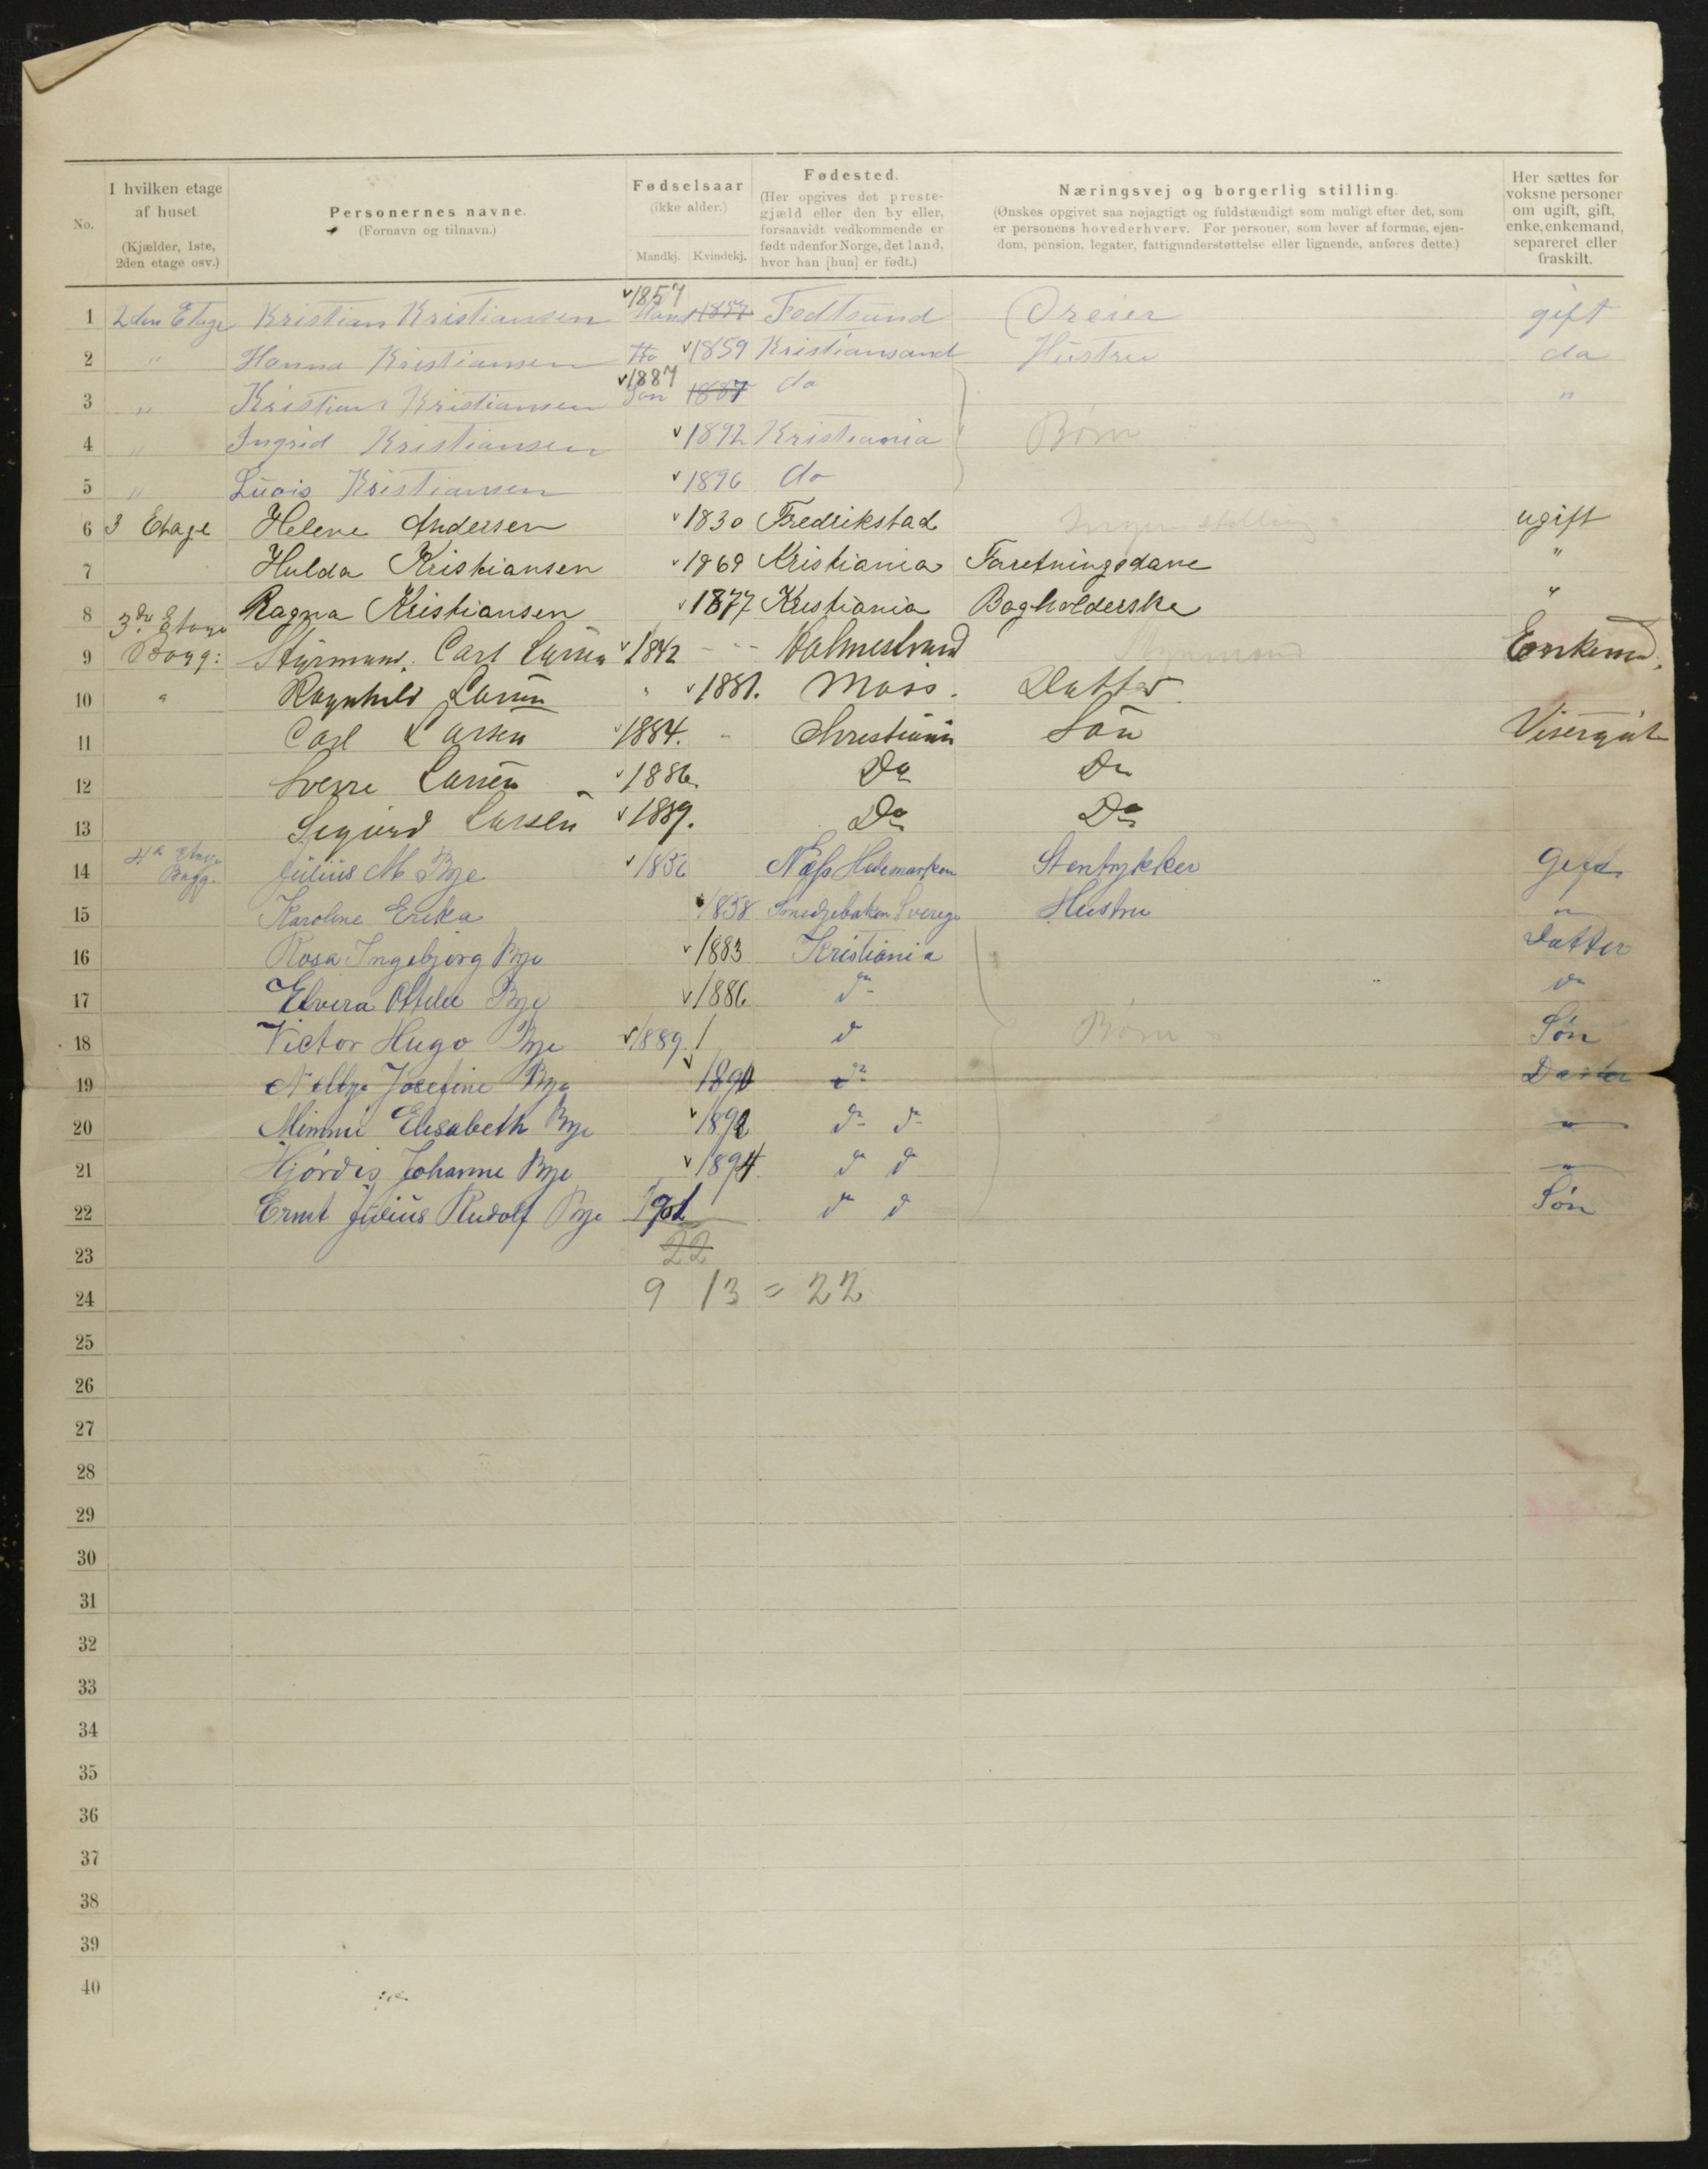 No.
I hvilken etage af huset. (Kjælder, 1ste, 2den etage osv.)
Personernes navne. (Fornavn og tilnavn.)
Fødselsaar (ikke alder.) Mandkj. Kvindekj.
Fødested. (Her opgives det prestegjæld eller den by eller, forsaavidt vedkommende er født udenfor Norge, det land, hvor han [hun] er født.)
Næringsvej og borgerlig stilling. (Ønskes opgivet saa nøjagtigt og fuldstændigt som muligt efter det, som er personens hovederhverv. For personer, som lever af formue, ejendom, pension, legater, fattigunderstøttelse eller lignende, anføres dette.)
Her sættes for voksne personer om ugift, gift, enke, enkemand, separeret eller fraskilt.
1 2den Etage Kristian Kristiansen 1857 Man 1857 Fedtsund Dreier gift
2 " Hanna Kristiansen 1859 Kristiansand Hustru do
3 " Kristian Kristiansen 1887 Søn 1887 do "
4 " Ingrid Kristiansen 1892 Kristiania Børn
5 " Luois Kristiansen 1896 do
6 3 Etage Helene Andersen 1830 Fredrikstad Ingen stilling ugift
7 Hulda Kristiansen 1869 Kristiania Foretningsdame "
8 Ragna Kristiansen 1877 Kristiania Bogholderske "
3die Etage
9 Bagg: Styrmand. Carl Larsen 1842 - -- Holmestrand Styrmand Enkemd.
10 " Ragnhild Larsen " 1881. Moss. Datter.
11 Carl Larsen 1884. " Christiania Søn Visergut
12 Sverre Larsen 1886 Do Do
13 Sigurd Larsen 1889. Do Do
4de Etage
14 Bagg. Julius M Bye 1856 Næss Hedemarken Stentrykker Gift
15 Karoline Erika 1858 Smedjebaken Sverige Hustru "
16 Rosa Ingebjørg Bye 1883 Kristiania Datter
17 Elvira Ottilie Bye 1886 do do
18 Victor Hugo Bye 1889 do Børn Søn
19 Nelly Josefine Bye 1890 do Datter
20 Mimmi Elisabeth Bye 1892 do do "
21 Hjördis Johanne Bye 1894 do do "
22 Ernst Julius Rudolf Bye 1901 do do Søn
23 22
24 9 13 = 22
25
26
27
28
29
30
31
32
33
34
35
36
37
38
39
40